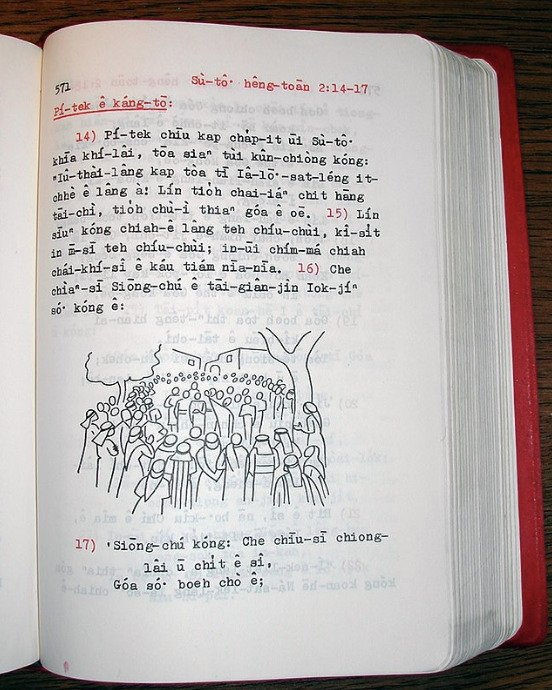 571 Sù-tô͘ hêng-toān 2:14-17
Pí-tek ê káng-tō:
14) Pí-tek chīu kap cha̍p-it ūi Sù-tô͘
khīa khí-lâi, tōa siaⁿ tùi kûn-chiòng kóng:
"Iû-thài-lâng kap tòa tī Iâ-lō͘-sat-léng it-
chhè ê lâng à! Lín tio̍h chai-iáⁿ chit hāng
tāi-chì, tio̍h chù-ì thiaⁿ góa ê oē. 15) Lín
siūⁿ kóng chiah-ê lâng teh chíu-chùi, kî-si̍t
in m̄-sī teh chíu-chùi; in-ūi chím-má chiah
chái-khí-sî ê káu tiám nīa-nīa. 16) Che
chìaⁿ-sī Siōng-chú ê tāi-giân-jin Iok-jíⁿ
só͘ kóng ê:
17) 'Siōng-chú kóng: Che chīu-sī chiong-
lâi ū chi̍t ê sî,
Góa só͘ boeh chò ê;